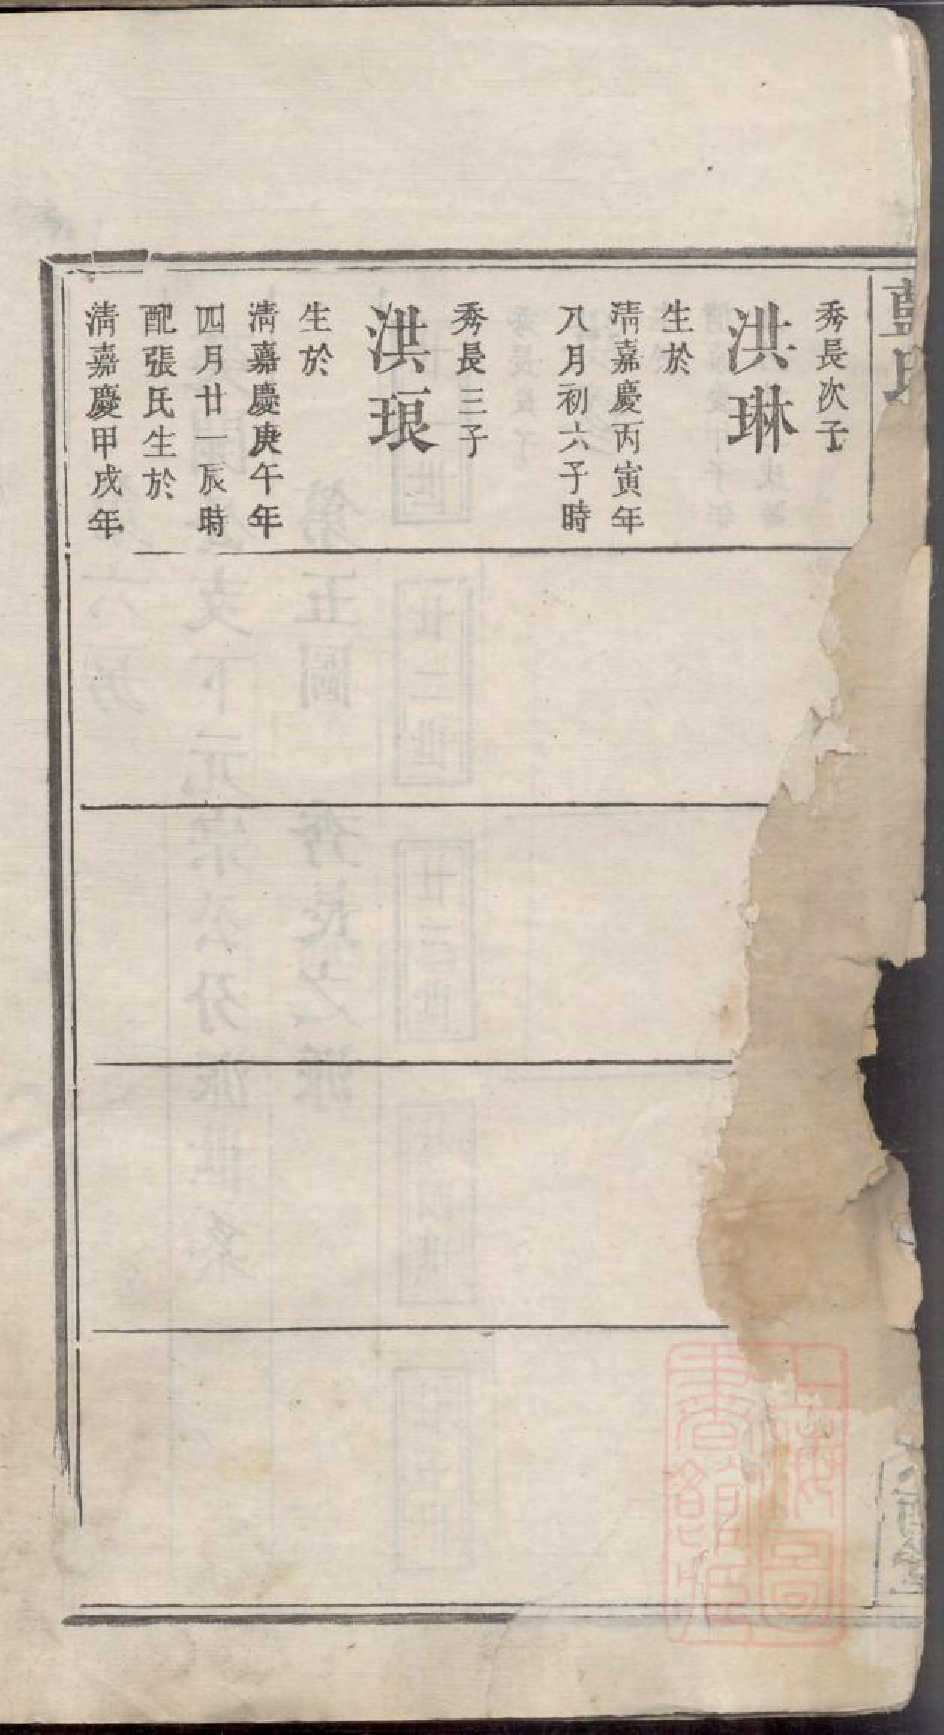 秀長次子
洪琳
生於
淸嘉慶丙寅年
八月初六子時
秀長三子
洪琅
生於
淸嘉慶庚午年
四月廿一辰時
配張氏生於
淸嘉慶甲戌年
上海圖
書館藏